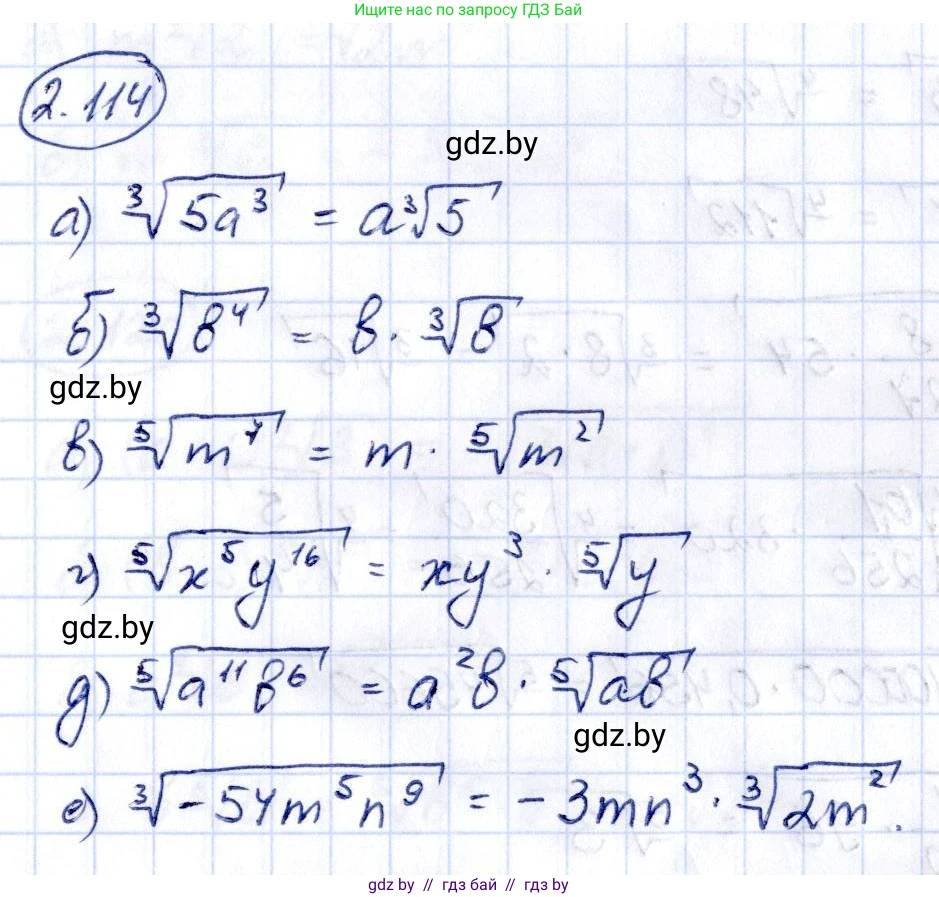 Ищите нас по запросу ГДЗ Бай
2.114
gdz.by
а) ∛(5a³) = a∛5
б) ∛(b⁴) = b · ∛b
gdz.by
в) ⁵√(m⁷) = m · ⁵√(m²)
г) ⁵√(x⁵y¹⁶) = xy³ · ⁵√y
gdz.by
д) ⁵√(a¹¹b⁶) = a²b · ⁵√(ab)
gdz.by
е) ∛(-54m⁵n⁹) = -3mn³ · ∛(2m²).
gdz by // гдз бай // gdz by